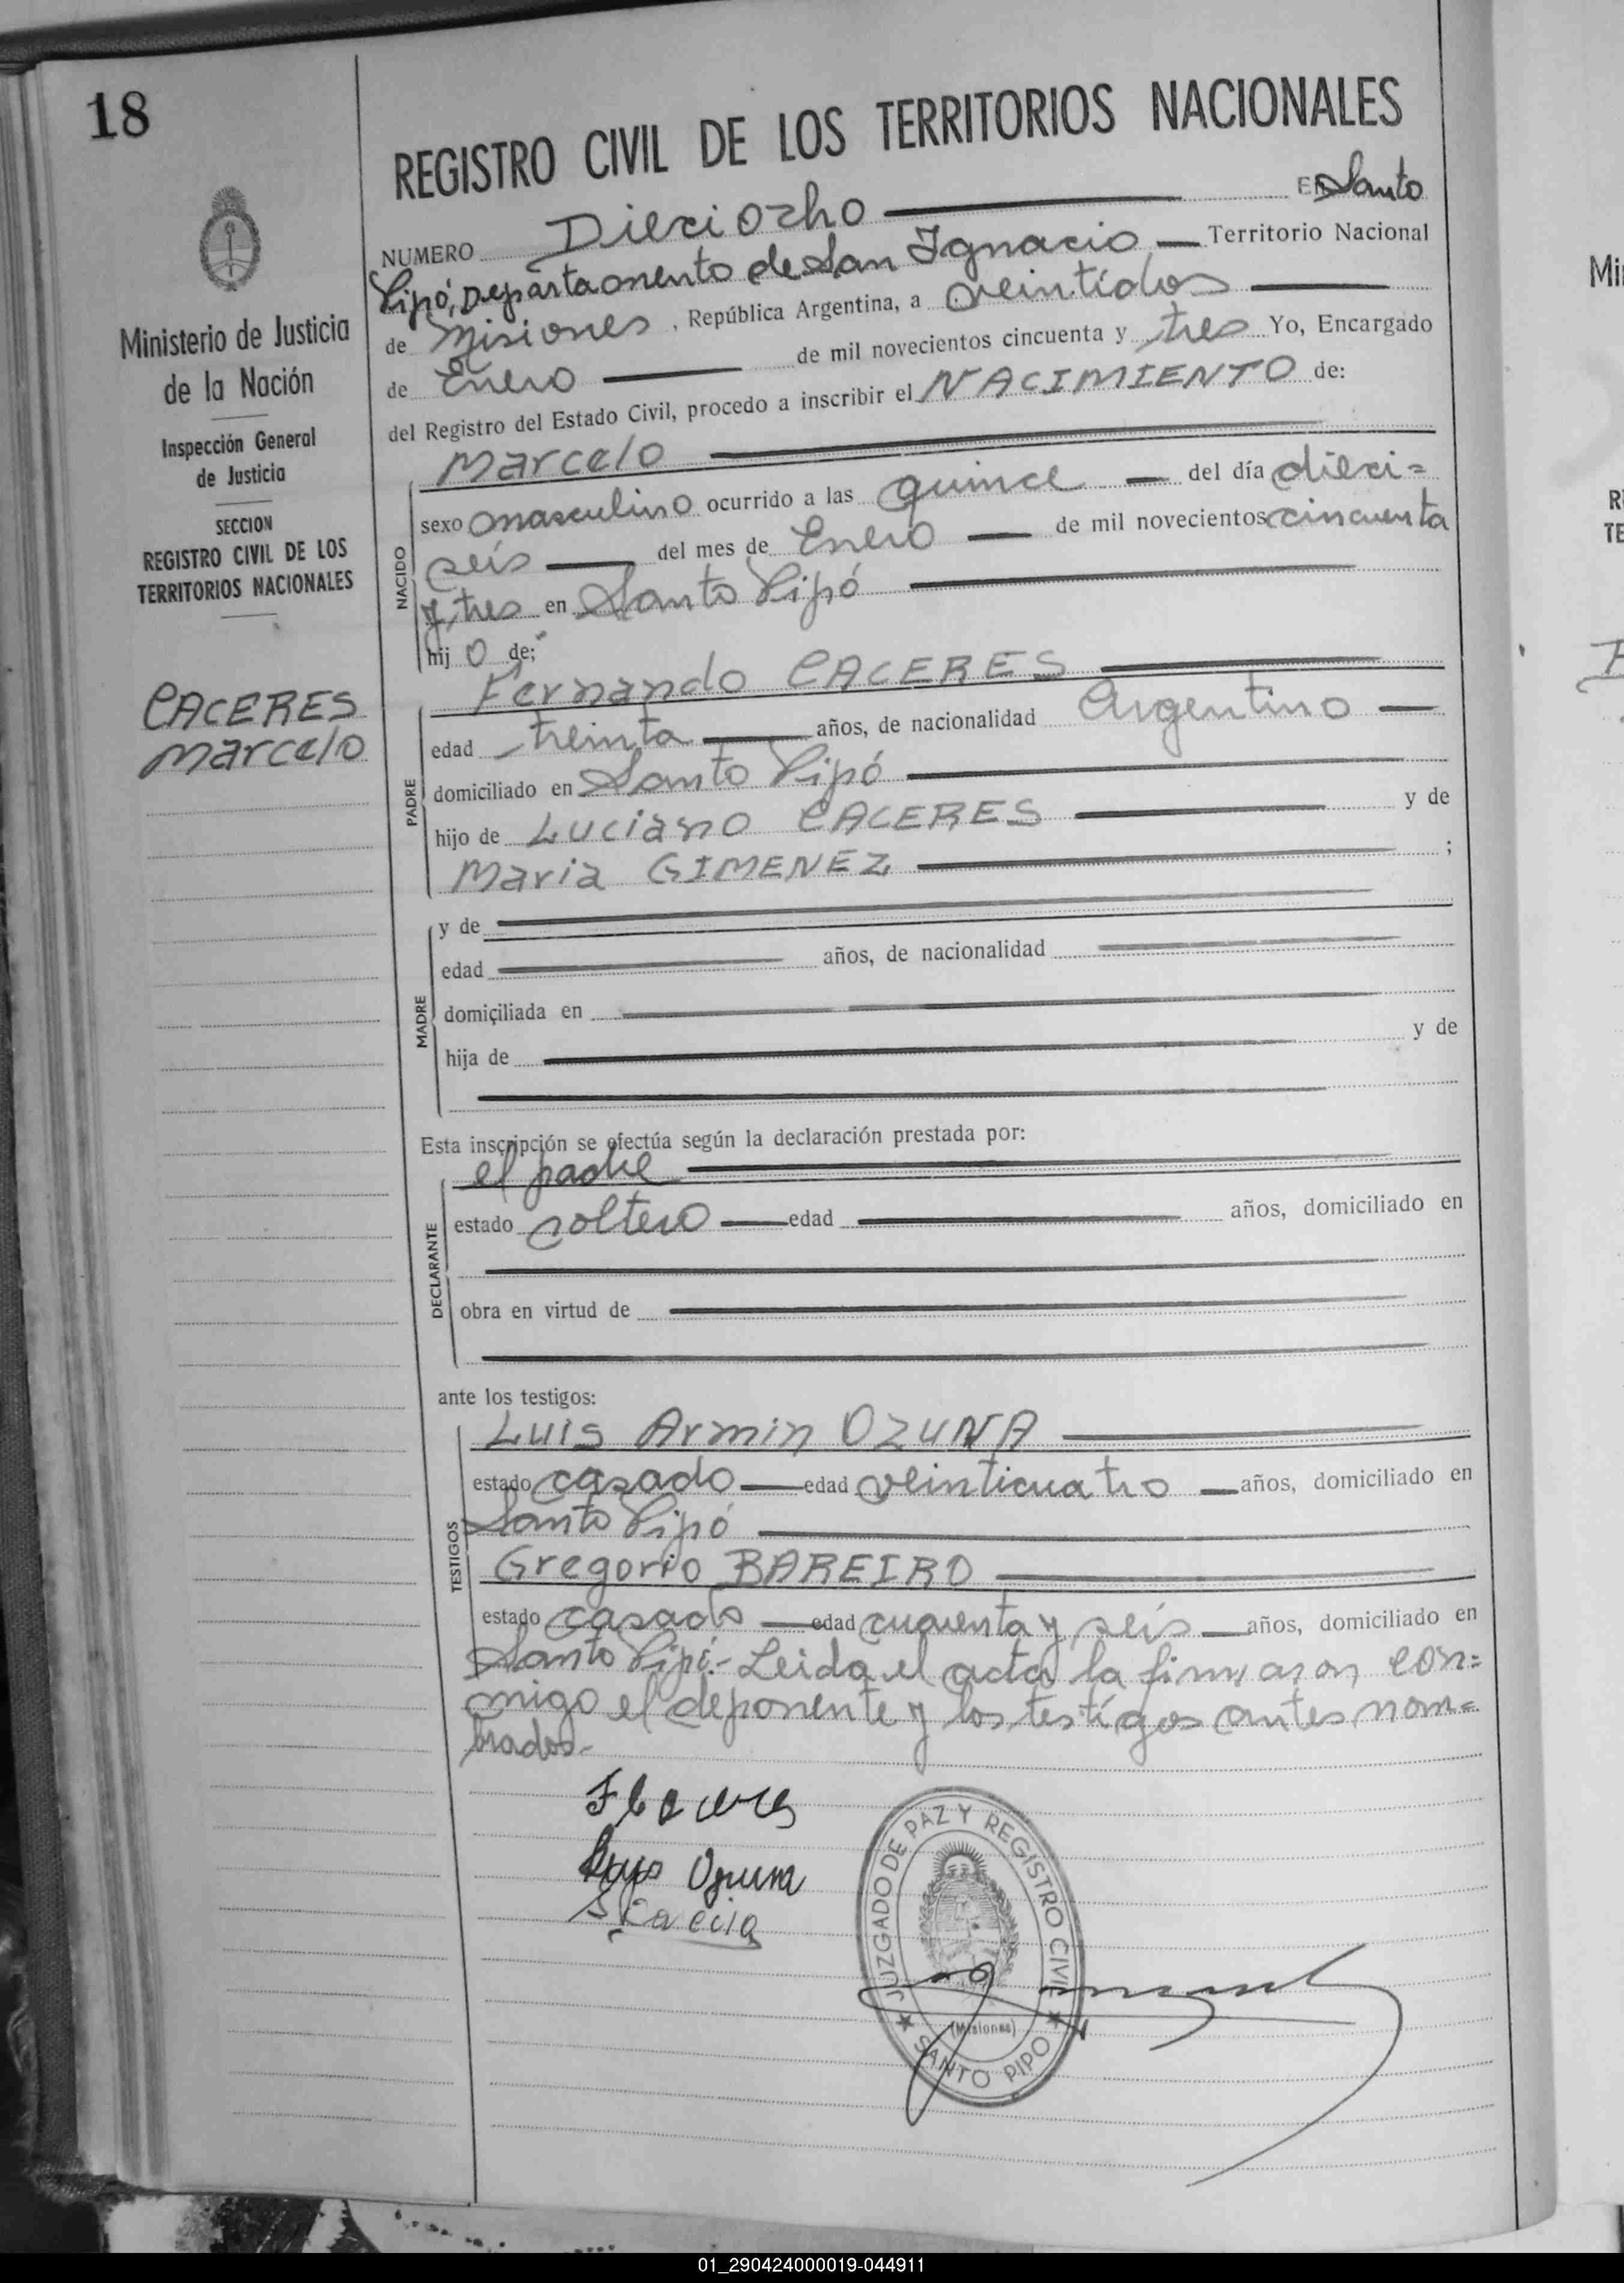 18
REGISTRO CIVIL DE LOS TERRITORIOS NACIONALES
Ministerio de Justicia
de la Nación
Inspección General
de Justicia
SECCION
REGISTRO CIVIL DE LOS
TERRITORIOS NACIONALES
CACERES
Marcelo
NUMERO Dieciocho EN Santo
Pipó, Departamento de San Ignacio Territorio Nacional
de Misiones, República Argentina, a veintidos
de Enero de mil novecientos cincuenta y tres Yo, Encargado
del Registro del Estado Civil, procedo a inscribir el NACIMIENTO de:
NACIDO
Marcelo
sexo masculino ocurrido a las quince del día dieci=
seis del mes de Enero de mil novecientos cincuenta
y tres en Santo Pipó
hijo de:
PADRE
Fernando CACERES
edad treinta años, de nacionalidad Argentino
domiciliado en Santo Pipó
hijo de Luciano CACERES y de
Maria GIMENEZ ;
MADRE
y de
edad años, de nacionalidad
domiciliada en
hija de y de
Esta inscripción se efectúa según la declaración prestada por:
DECLARANTE
el padre
estado soltero edad años, domiciliado en
obra en virtud de
ante los testigos:
TESTIGOS
Luis Armin OZUNA
estado casado edad veinticuatro años, domiciliado en
Santo Pipó
Gregorio BAREIRO
estado casado edad cuarenta y seis años, domiciliado en
Santo Pipó.- Leida el acta la firmaron con=
migo el deponente y los testigos antes nom=
brados.-
Ozuna
JUZGADO DE PAZ Y REGISTRO CIVIL
(Misiones)
★ SANTO PIPO ★
01_290424000019-044911